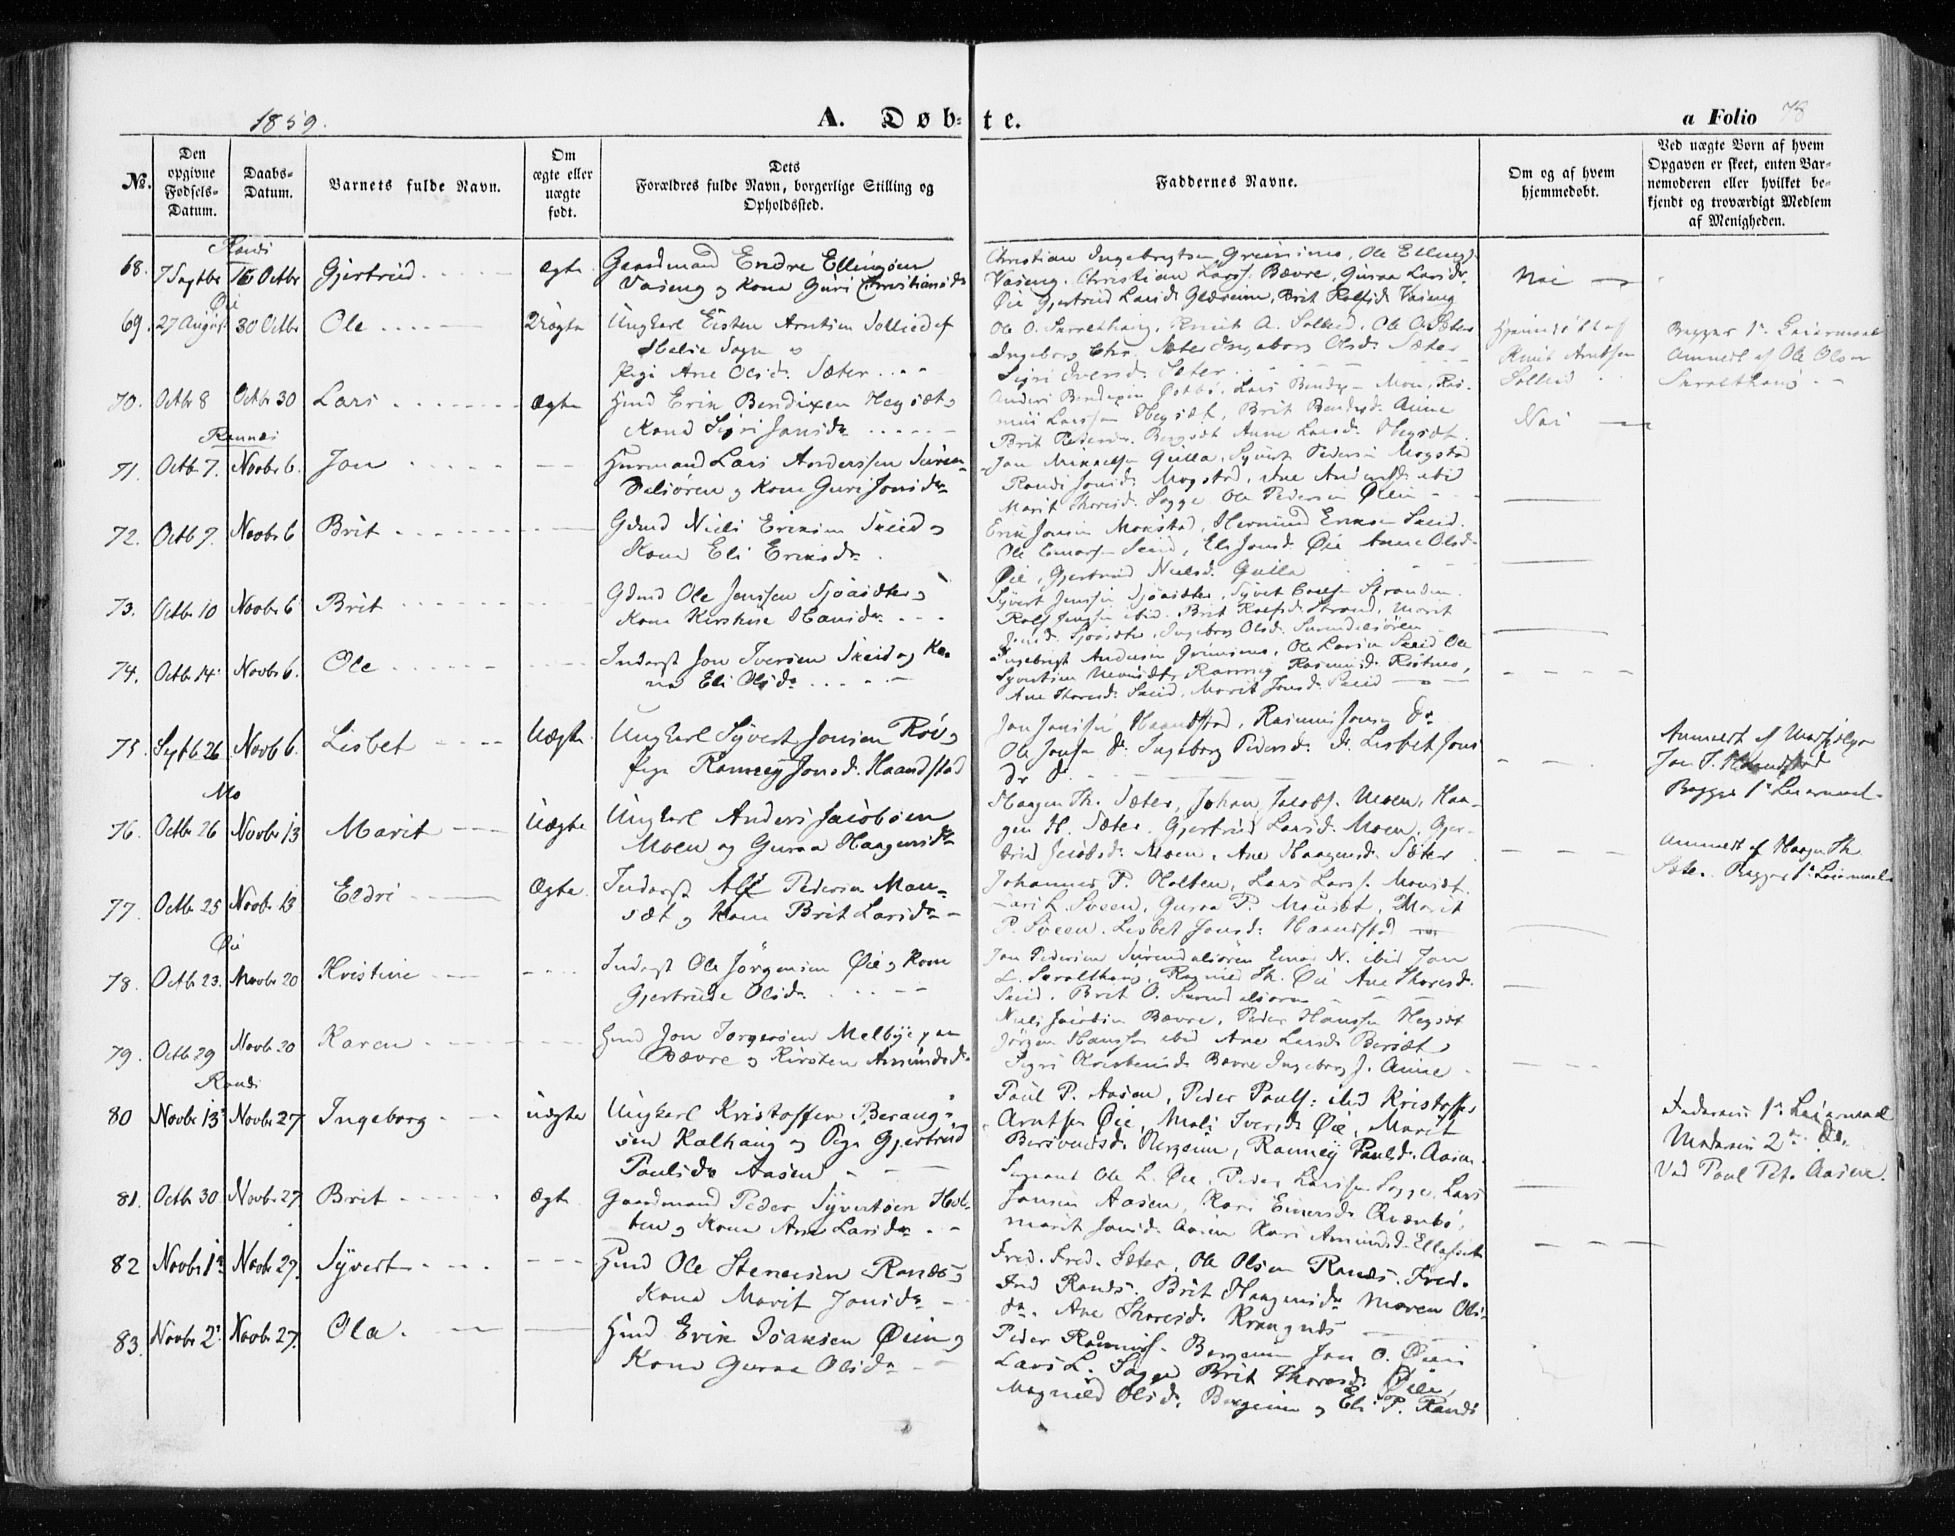 1859.
A. Døb-
te.
a Folio 78
No.
Den opgivne Fødsels-Datum.
Daabs-Datum.
Barnets fulde Navn.
Om ægte eller uægte født.
Dets Forældres fulde Navn, borgerlige Stilling og Opholdssted.
Faddernes Navne.
Om og af hvem hjemmedøbt.
Ved uægte Børn af hvem Opgaven er skeet, enten Barnemoderen eller hvilket bekjendt og troværdigt Medlem af Menigheden.
68. 7 Septbr 16 Octbr Gjertrud ægte Gaardmand Endre Ellingsen
Vaseng og Kone Guri Christiansdr
Christian Ingebrigtsen Grimsmo, Ole Ellings.
Vaseng. Christian Larss. Bævre, Guraa Larsdr.
Øie Gjertrud Larsd. Glærum, Brit Rolfsd. Vaseng
Nei
Øie
69. 27 August 30 Octbr Ole Uægte Ungkarl Eisten Arntsen Sollied af
Halse Sogn og
Pige Ane Olsdr. Sæter
Ole O. Saralthaug, Knut A. Sollied, Ole O. Sæter
Ingeborg Chr. Sæter Ingeborg Olsd. Sæter
Sigri Iversd. Sæter
Hjemmedøbt af
Knut Arntsen
Sollied
Begges 1ste Leiermaal
Anmeldt af Ole Olsen
Saralthaug
70. Octbr 8 Octbr 30 Lars ægte Hmd Erik Bendixen Hegsæt og
Kone Sigri Jonsdr
Anders Bendixen
Brit Pedersdr. Bergsæt Anne Larsd. Hegsæt
Nei
Rannæs
71. Octb. 7. Novbr 6. Jon Huusmand Lars Anderssen Suren-
dalsøren og Kone Guri Jonsdr
Jon Mikkelsen Gulla, Syvert Pedersen Mogstad
Randi Jonsd. Mogstad, Ane Andersd. ibid
Marit Thoresd. Sogge Ole Pedersen Øien
72. Octb 7. Novbr 6 Brit Gdmd Niels Eriksen Skeid og
Kone Eli Eriksdr.
Erik Jonsen Mogstad, Hermund Eriksen Skeid.
Ole Einarsen Skeid, Eli Jonsd. Øie Anne Olsd.
Øie, Gjertrud Nielsd. Gulla
73. Octbr 10 Novbr 6 Brit Gdmd Ole Jenssen Sjøasæter og
Kone Kirstine Hansdr.
Sjøasæter, Ingeborg Olsd. Surendalsøren
74. Octb. 14. Novbr 6. Ole Inderst Jon Iversen Skeid og Ko-
ne Eli Olsdr.
Ingebrigt Andersen Grimsmo, Ole Larsen Skeid Ole
Ane Thoresd. Skeid, Marit Jonsd. Skeid
75. Septb 26 Novb 6. Lisbet Uægte. Ungkarl Syvert Jonsen Røv og
Pige Ranneÿ Jonsd. Haandstad
Jon Jonssen Haandstad, Rasmus Jonsen do
Ole Jonsen do. Ingeborg Pedersd. do. Lisbet Jons
dr do.
Jon J. Haandstad
Begges 1ste Leiermaal.
Mo
76. Octbr 26 Novbr 13 Marit Uægte Ungkarl Anders Jacobsen
Moen og Guraa Haagensdr
Haagen Th. Sæter, Johan Jacobs. Moen, Haa-
gen H. Sæter. Gjertrud Larsd. Moen. Gjer-
trud Jacobsd. Moen. Ane Haagensd. Sæter
Anmeldt af Haagen Th.
Sæter. Begges 1ste Leiermaal.
77. Octbr. 25 Novbr. 13 Eldri Ægte Inderst Alf Pedersen Mau-
sæt og Kone Brit Larsdr
Johannes P. Holten, Lars Larss. Mousæt.
Kari L. Sveen, Guraa P. Mousæt, Marit
P. Sveen. Lisbet Jonsd: Haandstad
Øie
78. Octbr 23. Novbr 20 Kristine Inderst Ole Jørgensen Øie og Kone
Gjertrude Olsdr.
Jon Pedersen Surendalsøren Einar N. ibid Jon
L. Saralthaug, Ragnild Th. Øie Ane Thoresd.
Skeid. Brit O. Surendalsøren
79. Octbr 29 Novbr 20 Karen Hmd Jon Torgersen Melbye pan
Bævre og Kirsten Amundsd.
Niels Jacobsen Bævre, Peder Hanssen Hegsæt
Jørgen Hanssen ibid Ane Larsd. Bersæt
Ranæs
80 Novbr 13 Novbr 27 Ingeborg uægte Ungkarl Kristoffer Berang-
sen Kalhaug og Pige Gjertrud
Paulsdr Aasen
Paul P. Aasen, Peder Pauls: ibid Kristoffer
Arntsen Øie, Mali Iversd. Øie, Marit
Bersvendsd. Bergem, Ranney Paulsd. Aasen.
Faderens 1ste Leiermaal
Moderens 2det Do.
Ved Paul Pet. Aasen.
81. Octbr 30 Novbr 27. Brit ægte Gaardmand Peder Syvertsen Hol-
ten og Kone Ane Larsdr.
Sergeant Ole L. Øie, Peder Larssen Sogge, Lars
Jonsen Aasen, Kari Einersd. Qvænbø,
Marit Jonsd. Aasen Kari Amundsd.
82 Novbr 1ste Novbr 27. Syvert Hmd Ole Stenersen Ranæs og
Kone Marit Jonsdr
Fred. Fred. Sæter, Ole Olsen Ranæs. Fred.
Fred Ranæs. Brit Haagensdr Maren Ols-
dr. Ane Thoresd. Krangnæs
83. Novbr 2. Novbr 27. Ola Hmd Erik Isaksen Øien og
Kone Guraa Olsdr
Peder Rasmuss. Bergem Jon O. Øien
Lars L. Sogge Brit Thoresd. Øie,
Magnild Olsd. Bergem og Eli P. Ranæs